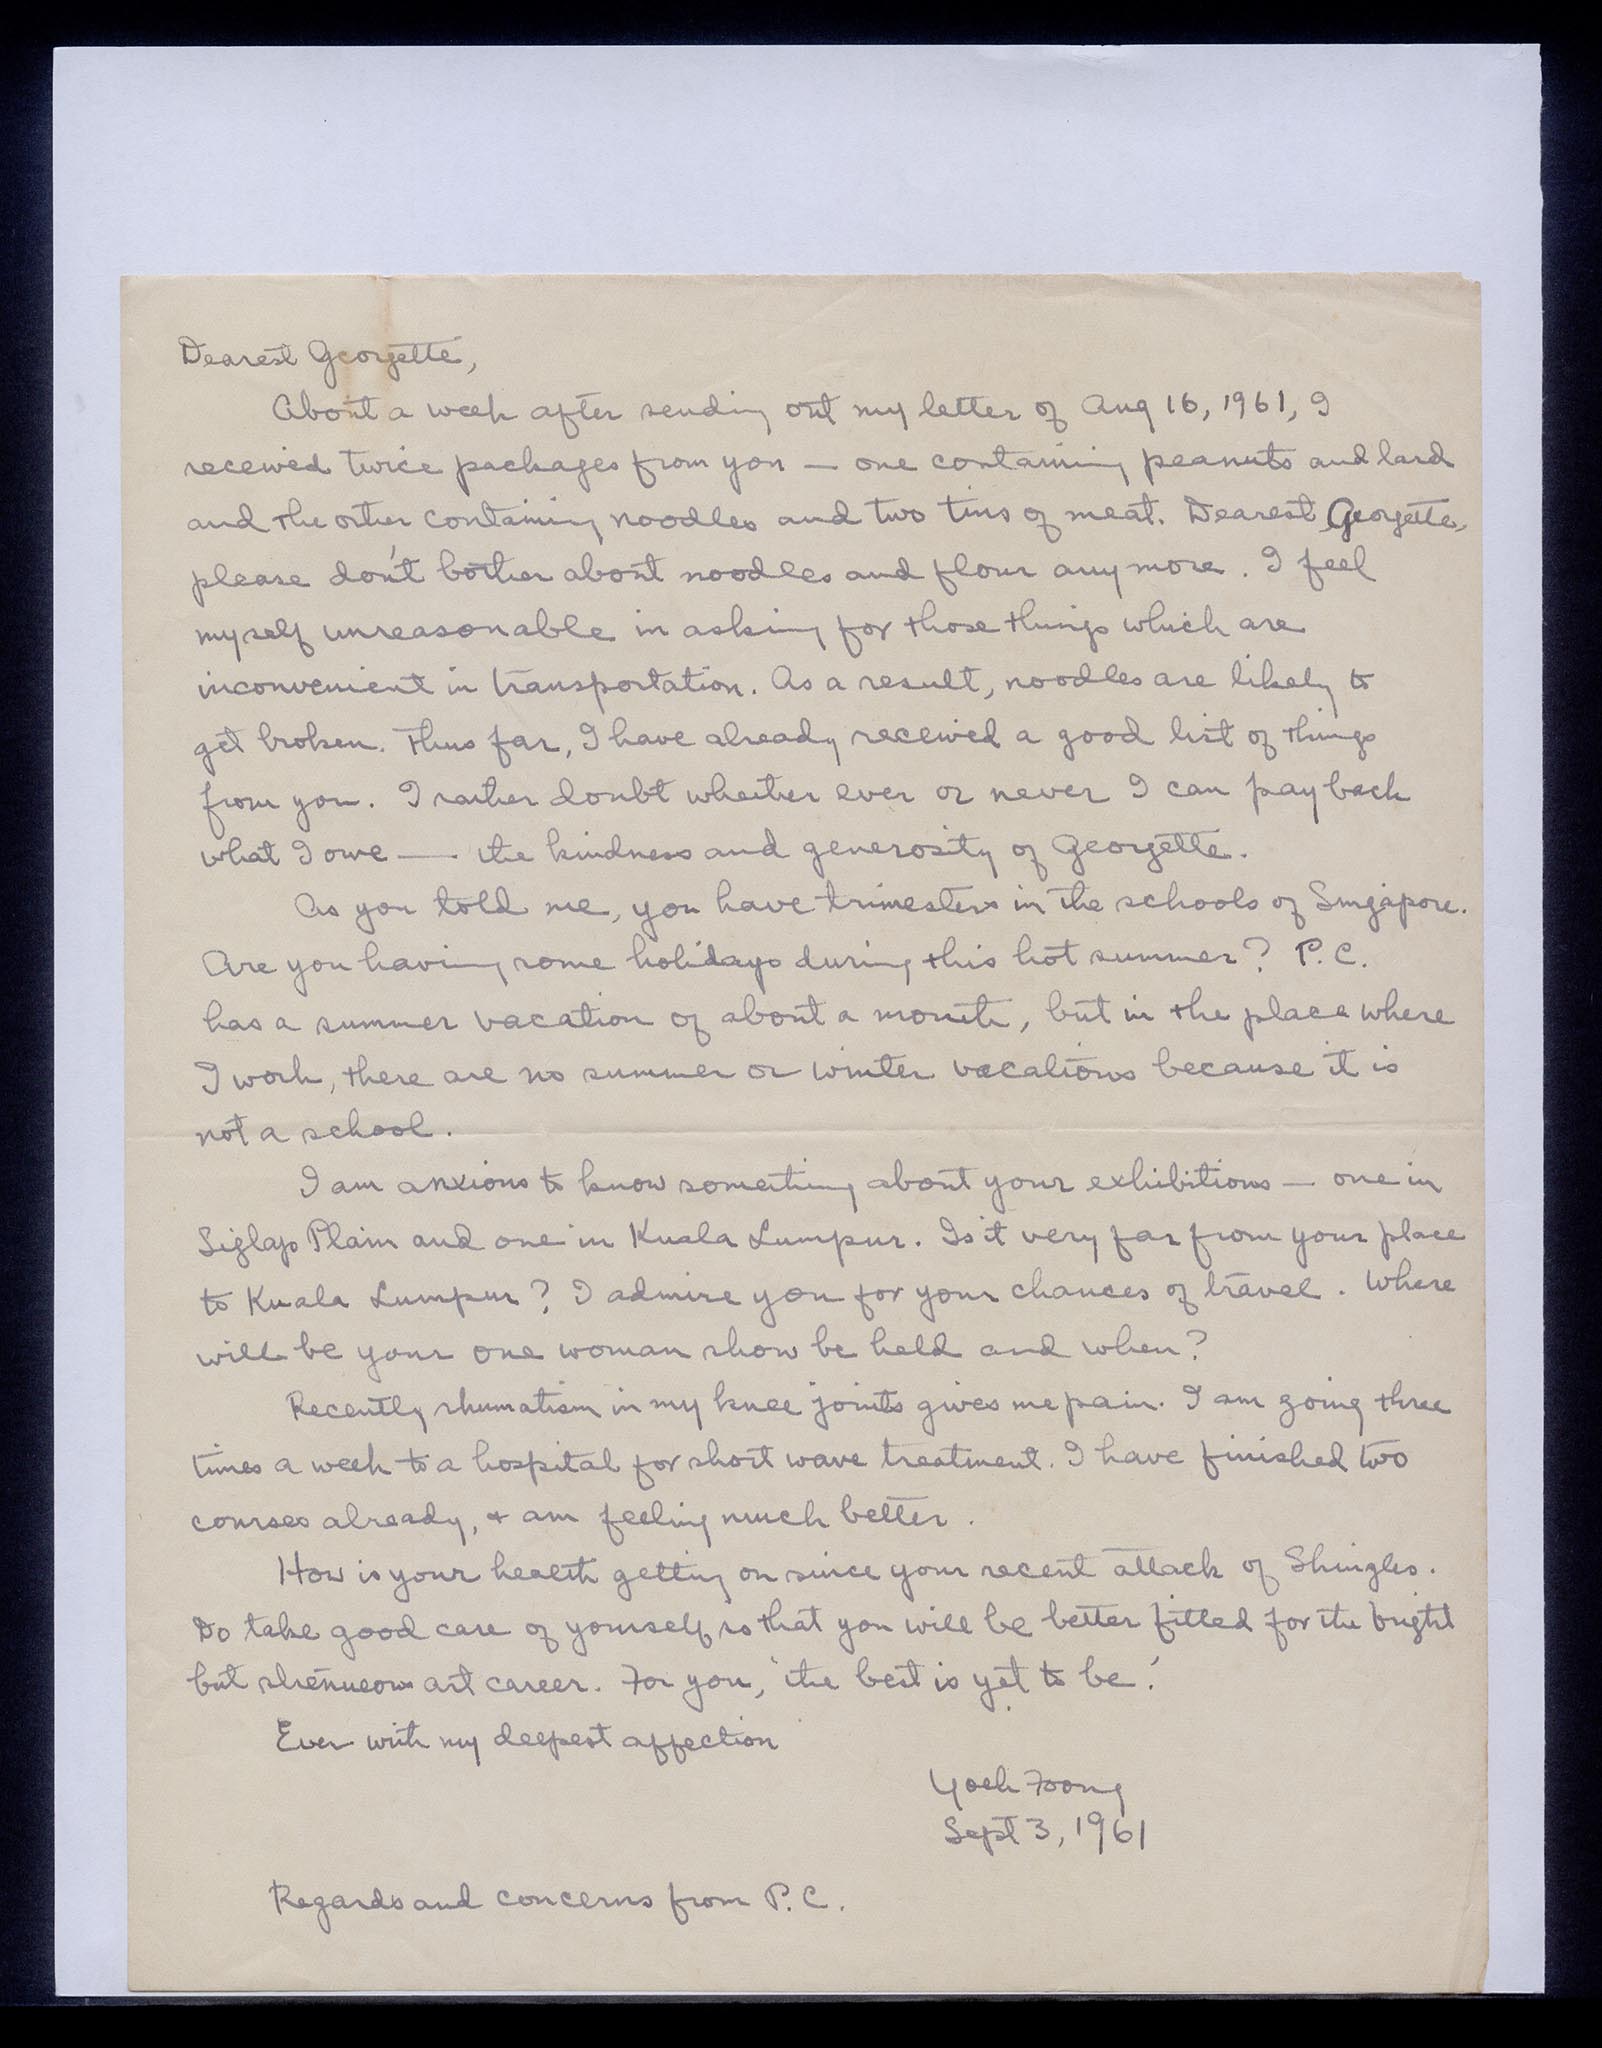 Dearest Georgette,
About a week after sending out my letter of Aug 16, 1961, I
received twice packages from you — one containing peanuts and lard
and the other containing noodles and two tins of meat. Dearest Georgette,
please don't bother about noodles and flour any more. I feel
myself unreasonable in asking for those things which are
inconvenient in transportation. As a result, noodles are likely to
get broken. Thus far, I have already received a good list of things
from you. I rather doubt whether ever or never I can pay back
what I owe — the kindness and generosity of Georgette.
As you told me, you have trimesters in the schools of Singapore.
Are you having some holidays during this hot summer? P.C.
has a summer vacation of about a month, but in the place where
I work, there are no summer or winter vacations because it is
not a school.
I am anxious to know something about your exhibitions — one in
Siglap Plain and one in Kuala Lumpur. Is it very far from your place
to Kuala Lumpur? I admire you for your chances of travel. Where
will be your one woman show be held and when?
Recently rhumatism in my knee joints gives me pain. I am going three
times a week to a hospital for short wave treatment. I have finished two
courses already, & am feeling much better.
How is your health getting on since your recent attack of Shingles.
Do take good care of yourself so that you will be better fitted for the bright
but strenueous art career. For you, 'the best is yet to be.'
Ever with my deepest affection
Yoeh Foong
Sept 3, 1961
Regards and concerns from P.C.